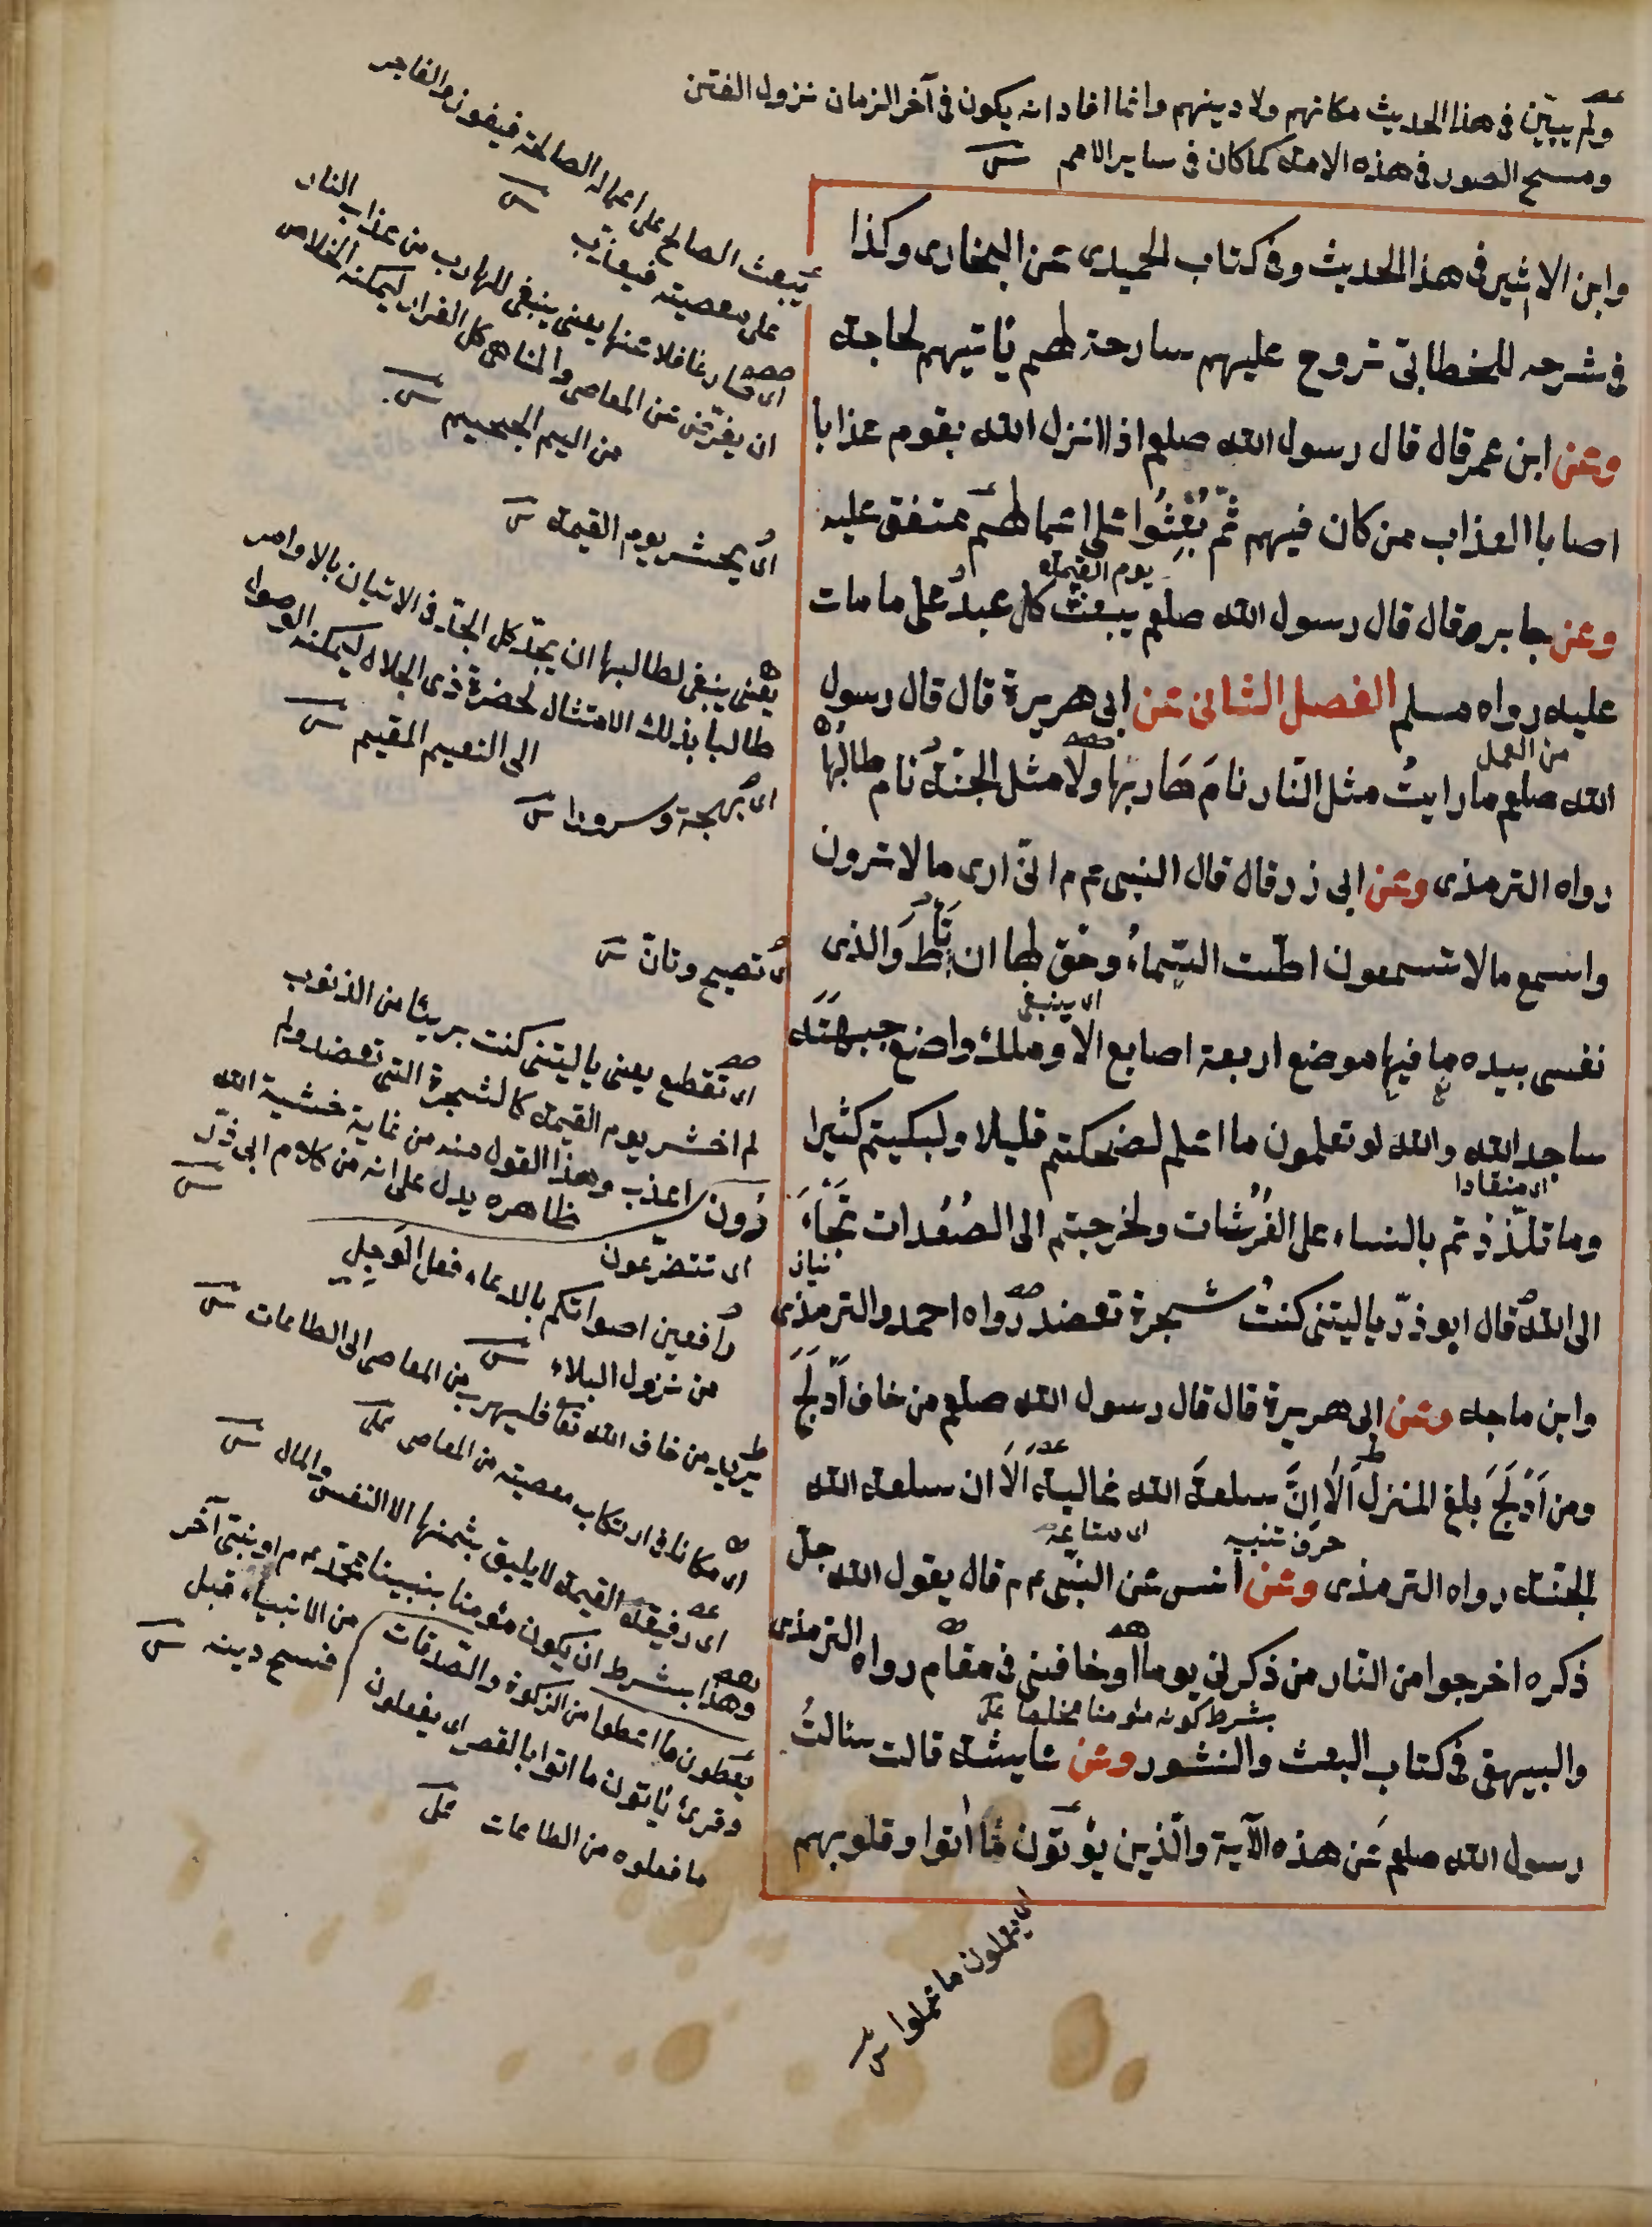 ولم يبيّن في هذا الحديث مكانهم ولا دينهم وانما افاد انه يكون في آخر الزمان نزول الفتن
ومسخ الصور في هذه الامة كما كان في ساير الامم
وابن الاثير في هذا الحديث وفي كتاب الحميدى عن البخارى وكذا
في شرحه للخطابي تروح عليهم سارحة لهم يأتيهم لحاجة
وعن ابن عمر قال قال رسول الله صلعم اذا انزل الله بقوم عذابا
اصاب العذاب من كان فيهم ثمّ بُعِثُوا على اعمالهم متفق عليه
يوم القيمة
وعن جابر قال قال رسول الله صلعم يبعث كل عبد على ما مات
عليه رواه مسلم الفصل الثانى عن ابى هريرة قال قال رسول
من العمل
الله صلعم ما رايتُ مثل النّار نامَ هَاربها ولا مثل الجنّة نام طالبُها
رواه الترمذى وعن ابى ذر قال قال النبى عم م انّى ارى ما لا ترون
واسمع ما لا تسمعون اطّت السّماءُ وحُق لها ان تَأِطَّ والذى
اى ينبغى
نفسى بيده ما فيها موضع اربعة اصابع الا وملك واضع جبهتَه
ساجد الله والله لو تعلمون ما اعلم لضحكتم قليلا ولبكيتم كثيرا
اى منقادا
وما تلذّذتم بالنساء على الفُرُشات ولخرجتم الى الصُعُدات تَجأَ
الى الله قال ابو ذرّ يا ليتنى كنتُ شجرة تعضد رواه احمد والترمذى
وابن ماجه وعن ابى هريرة قال قال رسول الله صلعم من خاف اَدلَجَ
ومن اَدلَجَ بلغ المنزل اَلَا اِنَّ سلعةَ الله غالية اَلَا ان سلعة الله
حرف تنبيه
اى متاعه
الجنّة رواه الترمذى وعن أنس عن النبّى عم م قال يقول الله جلّ
ذكره اخرجوا من النّار من ذكرنى يوما او خافنى في مقام رواه الترمذى
بشرط كونه مؤمنا مخلصا
والبيهقى في كتاب البعث والنشور وعن عايشة قالت سئالتُ
رسول الله صلعم عن هذه الآية والّذين يؤتون ما اٰتوا وقلوبهم
اى يعملون ما عملوا
يبعث الصالح على اعماله الصالحة فيفوز والفاجر
على معصيته فيعذب
اى صار غافلا عنها يعنى ينبغى للهارب من عذاب النار
ان يفرّ من المعاصى والمناهى كل الفرار ليمكنه الخلاص
من اليم الجحيم
اى يحشر يوم القيمة
يعنى ينبغى لطالبها ان يجدّ كل الجدّ في الاتيان بالاوامر
طالبا بذلك الامتثال لحضرة ذى الجلال ليمكنه الوصول
الى النعيم المقيم
اى بهجة وسرورا
اى تصيح وتأنّ
اى تقطع يعنى يا ليتنى كنت بريئا من الذنوب
لم احشر يوم القيمة كالشجرة التى تعضد ولم
اعذب وهذا القول منه من غاية خشية الله
ظاهره يدل على انه من كلام ابى ذرّ
رُون
اى تتضرعون
رافعين اصواتكم بالدعاء فعل الوجل
من نزول البلاء
يريد من خاف الله تعا فليهرب من المعاصى الى الطاعات
اى مكانا في ارتكاب معصيته من المعاصى
اى رفيعة القيمة لا يليق بثمنها الا النفس والمال
وهذا بشرط ان يكون مؤمنا بنبينا محمّد عم م او بنبى آخر
من الانبياء قبل
فنسخ دينه
يعطون ما اعطوا من الزكوة والصّدقات
وقرئ يأتون ما اتوا بالقصر اى يفعلون
ما فعلوه من الطاعات